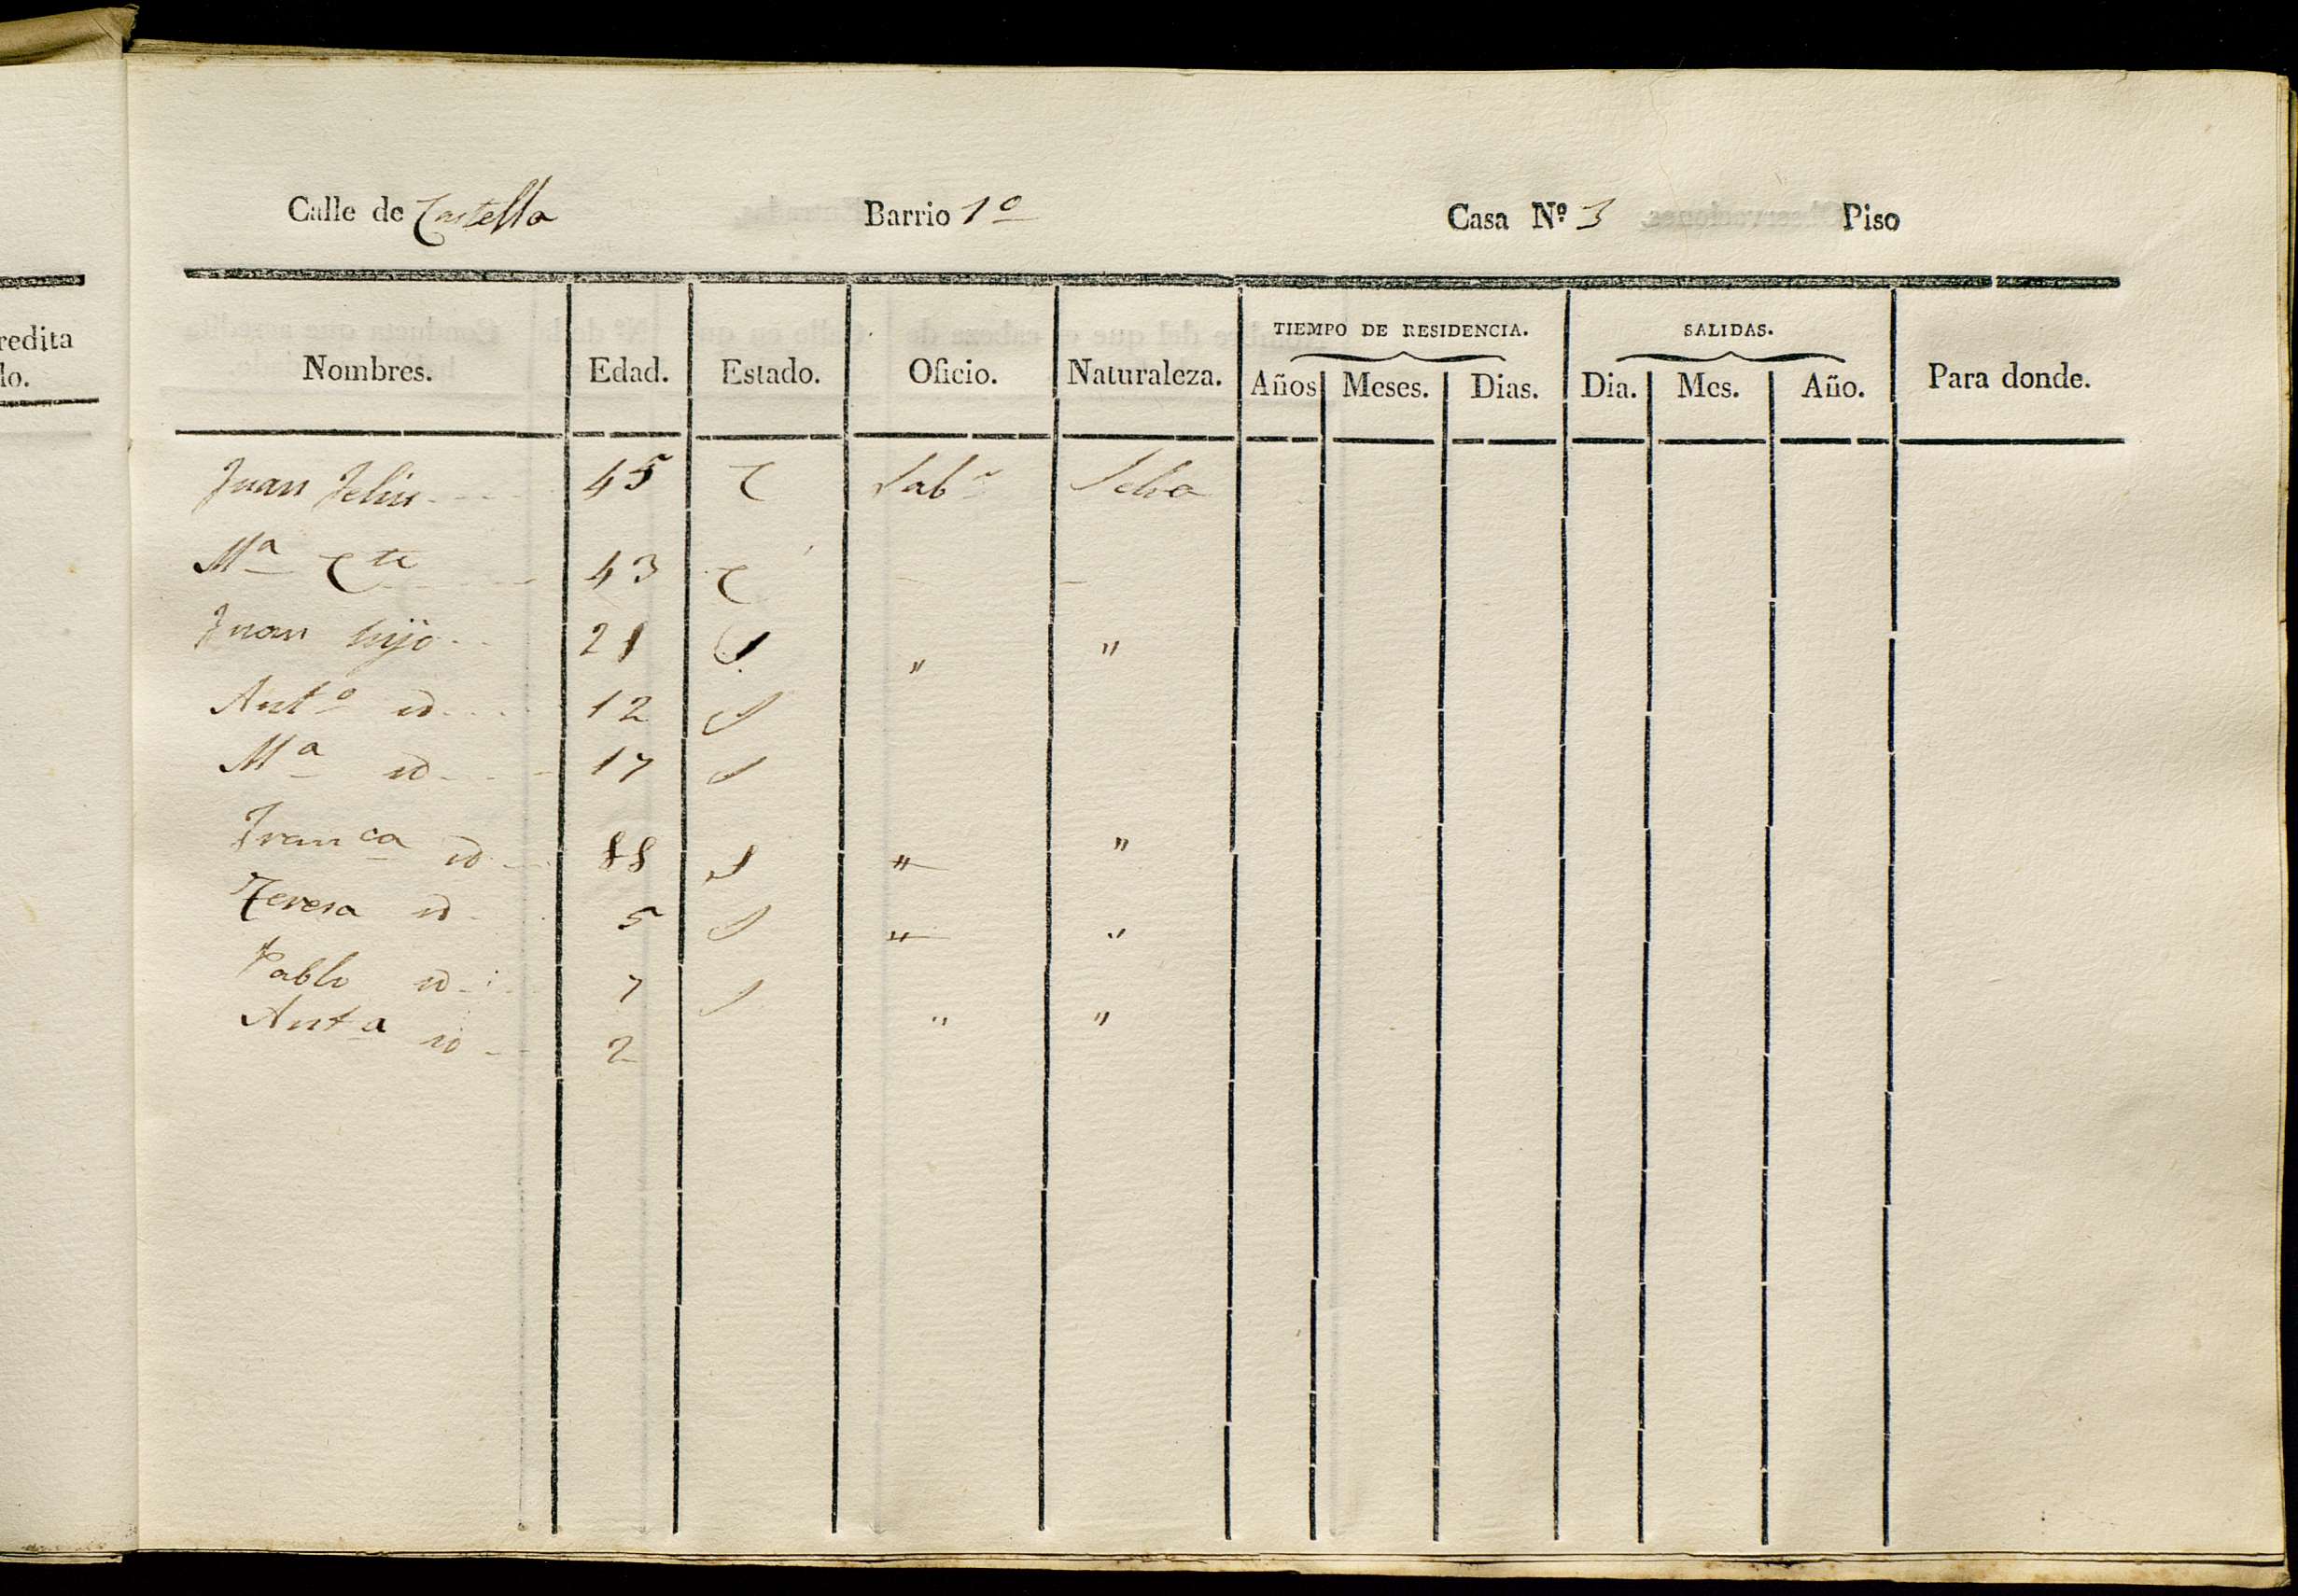 redita
lo.
Calle de Castella Barrio 1º Casa Nº 3 Piso
TIEMPO DE RESIDENCIA. SALIDAS.
Nombres. Edad. Estado. Oficio. Naturaleza. Años Meses. Dias. Dia. Mes. Año. Para donde.
Juan Feliu 45 C Labr Selva
Mª C te 43 C
Juan hijo 21 S " "
Antº id 12 S
Mª id 17 S
Franca id S " "
Teresa id 5 S " "
Pablo id 7 S " "
Anta id 2